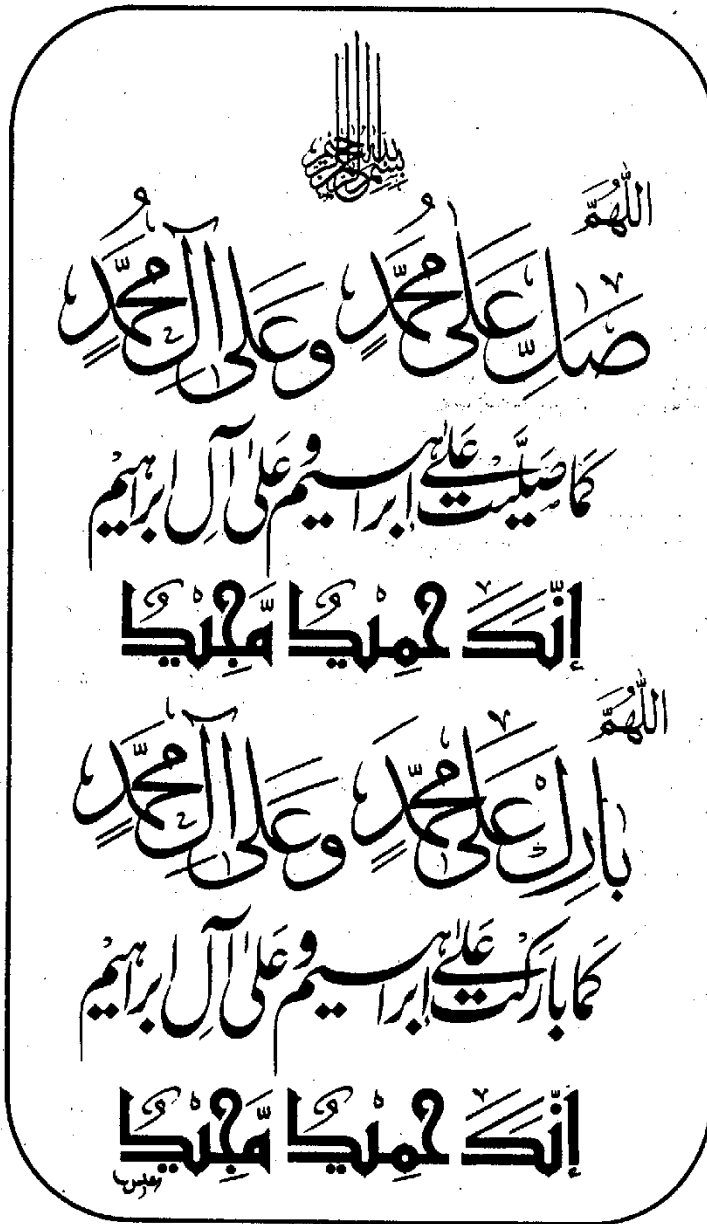 بسم الله الرحمن الرحيم
اللّٰهُمَّ
صَلِّ عَلٰى مُحَمَّدٍ وَعَلٰى آلِ مُحَمَّدٍ
كَمَا صَلَّيْتَ عَلٰى إبراهيم وعَلٰى آلِ ابراهيم
إنَّكَ حَمِيْدٌ مَّجِيْدٌ
اللّٰهُمَّ
بَارِكْ عَلٰى مُحَمَّدٍ وَعَلٰى آلِ مُحَمَّدٍ
كَمَا بَارَكْتَ عَلٰى إبراهيم وعَلٰى آلِ ابراهيم
إنَّكَ حَمِيْدٌ مَّجِيْدٌ